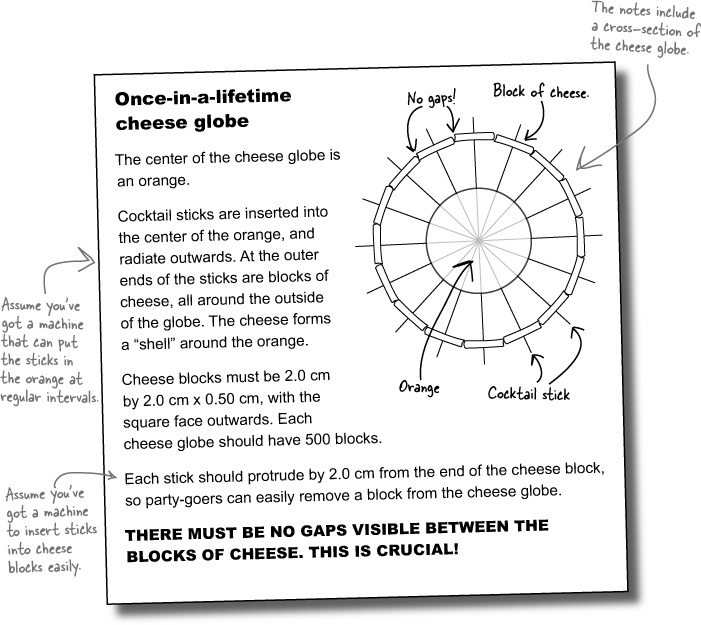 The notes include
a cross-section of
the cheese globe.
Once-in-a-lifetime
cheese globe
No gaps!
Block of cheese.
The center of the cheese globe is
an orange.
Cocktail sticks are inserted into
the center of the orange, and
radiate outwards. At the outer
ends of the sticks are blocks of
cheese, all around the outside
of the globe. The cheese forms
a “shell” around the orange.
Assume you've
got a machine
that can put
the sticks in
the orange at
regular intervals.
Orange
Cocktail stick
Cheese blocks must be 2.0 cm
by 2.0 cm x 0.50 cm, with the
square face outwards. Each
cheese globe should have 500 blocks.
Each stick should protrude by 2.0 cm from the end of the cheese block,
so party-goers can easily remove a block from the cheese globe.
Assume you've
got a machine
to insert sticks
into cheese
blocks easily.
THERE MUST BE NO GAPS VISIBLE BETWEEN THE
BLOCKS OF CHEESE. THIS IS CRUCIAL!